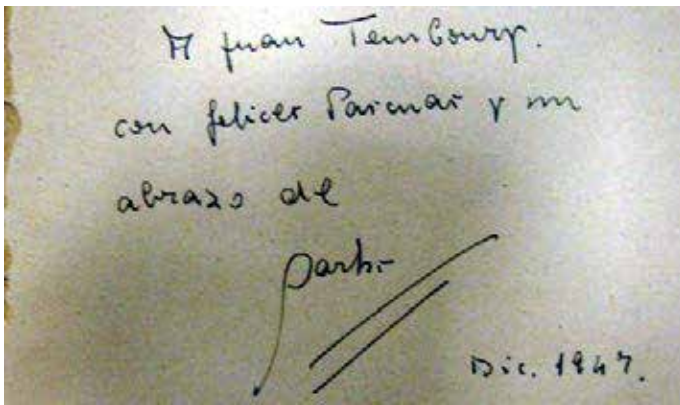 A Juan Temboury.
con felices Pascuas y un
abrazo de
Dic. 1947.